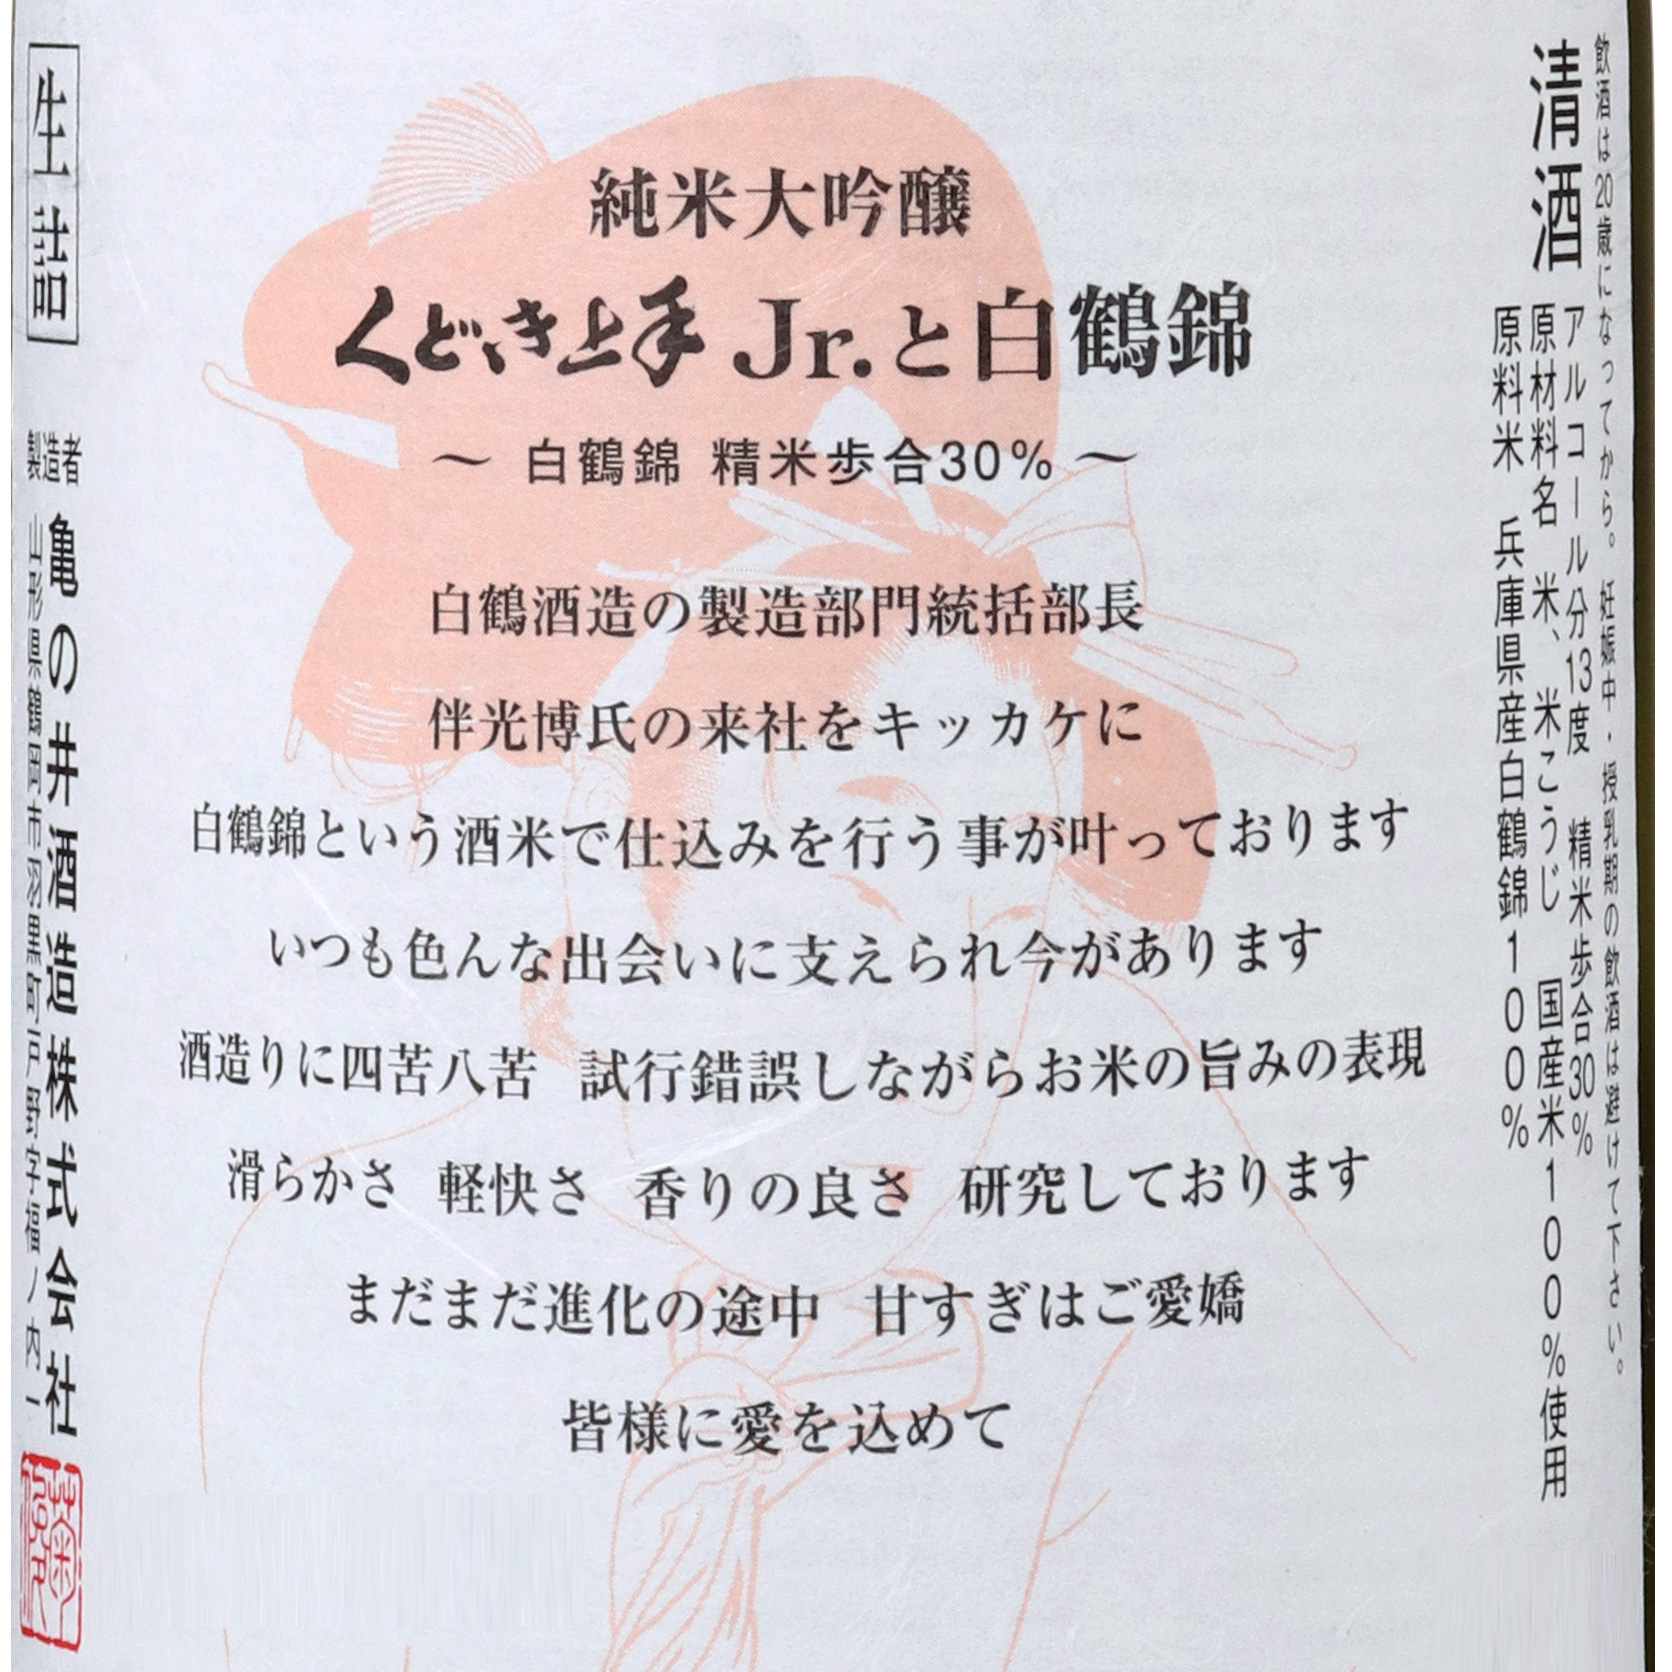 飲酒は20歳になってから。妊娠中・授乳期の飲酒は避けて下さい。
清酒
アルコール分13度 精米歩合30%
原材料名 米、米こうじ 国産米100%使用
原料米 兵庫県産白鶴錦100%
純米大吟醸
くどき上手 Jr.と白鶴錦
～ 白鶴錦 精米歩合30% ～
白鶴酒造の製造部門統括部長
伴光博氏の来社をキッカケに
白鶴錦という酒米で仕込みを行う事が叶っております
いつも色んな出会いに支えられ今があります
酒造りに四苦八苦 試行錯誤しながらお米の旨みの表現
滑らかさ 軽快さ 香りの良さ 研究しております
まだまだ進化の途中 甘すぎはご愛嬌
皆様に愛を込めて
生詰
製造者 亀の井酒造株式会社
山形県鶴岡市羽黒町戸野字福ノ内一